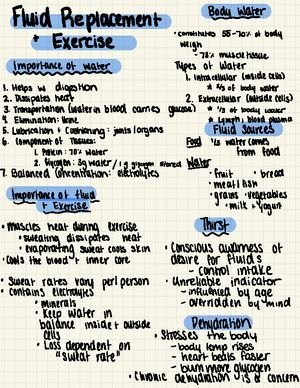 Fluid Replacement
+ Exercise
Importance of water
1. Helps w digestion
2. Dissipates heat
3. Transportation (water in blood carries glucose)
4. Elimination: Urine
5. Lubrication + Cushioning: joints/organs
6. Component of Tissues:
1. Protein: 70% water
2. Glycogen: 3g water / 1g glycogen stored
7. Balanced Concentration: electrolytes
Importance of fluid
+ Exercise
• Muscles heat during exercise
• sweating dissipates heat
• evaporating sweat cools skin
• Cools the blood + inner core
• Sweat rates vary per person
• contains electrolytes
• minerals
• Keep water in
balance inside + outside
cells
• Loss dependent on
"sweat rate"
Body Water
• constitutes 55-70% of body
weigh
- 73% muscle tissue
Types of Water
1. Intracellular (inside cells)
* 2/3 of body water
2. Extracellular (outside cells)
* 1/3 of body water
* Lymph, blood plasma
Fluid Sources
Food 1/3 water comes
from food
Water
• fruit • bread
• meat/fish
• grains • vegetables
• milk + yogurt
Thirst
• Conscious awareness of
desire for fluids
- control intake
• Unreliable indicator
- influenced by age
- overridden by mind
Dehydration
• Stresses the body
- body temp rises
- heart beats faster
- burn more glycogen
• Chronic dehydration is a concern